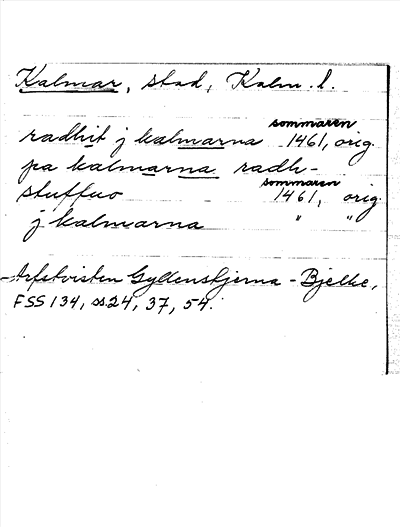 Kalmar, stad, Kalm. l.
sommaren
radhit j kalmarna 1461, orig.
pa kalmarna radh-
sommaren
stuffuo 1461, orig.
j kalmarna " "
Arfstvisten Gyllenstjerna - Bjelke,
FSS 134, ss. 24, 37, 54.